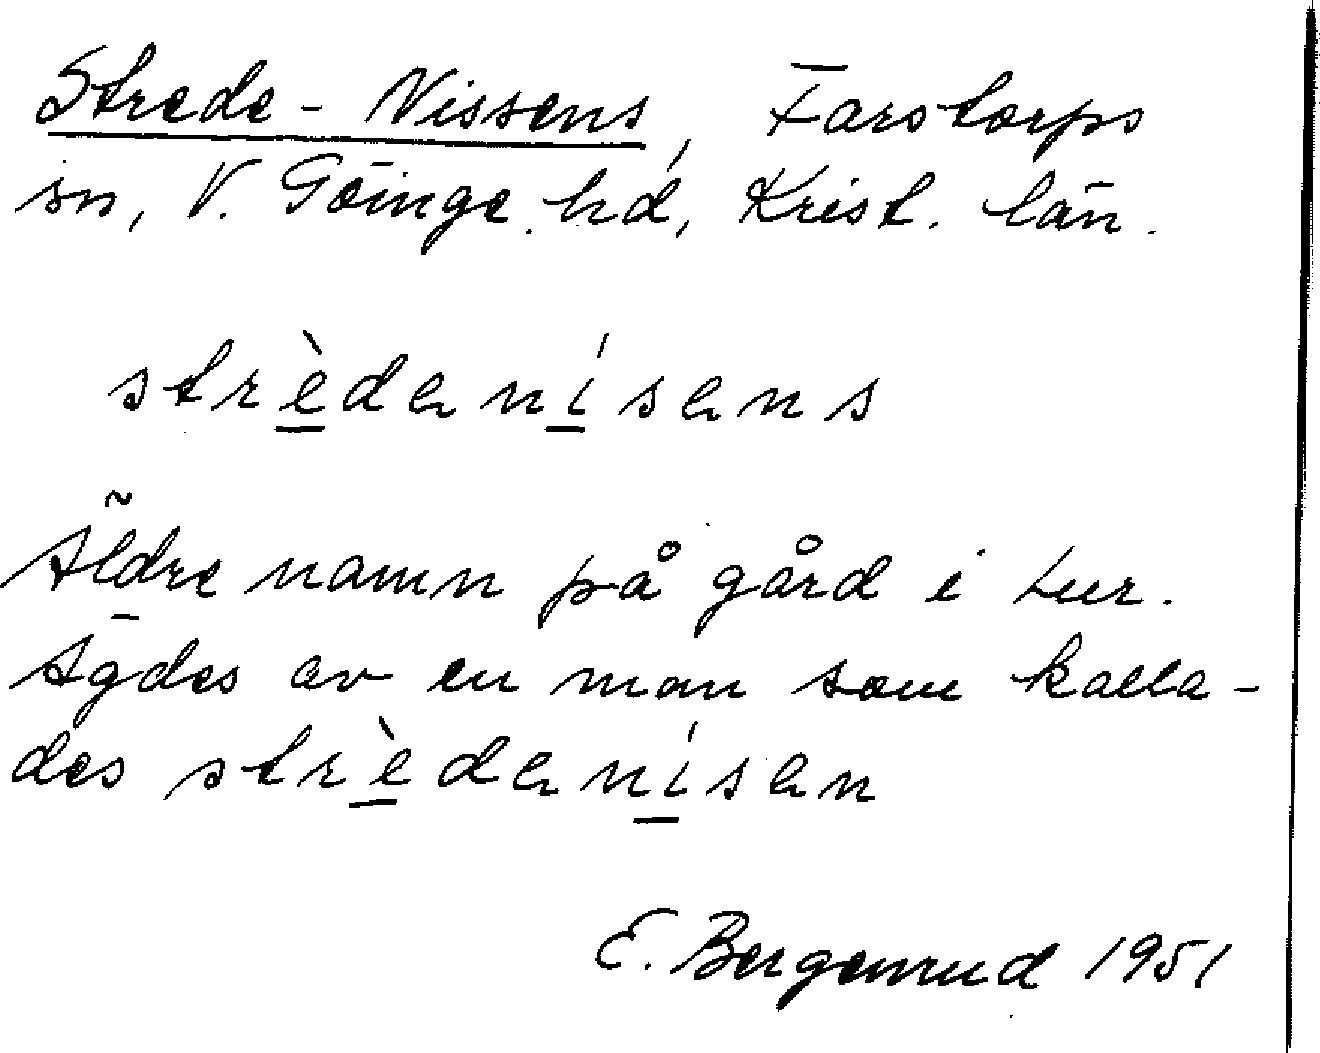 Strede-Nissens, Farstorps
sn, V. Göinge hd, Krist. län.
strèdenísens
Äldre namn på gård i Lur.
Ägdes av en man som kalla-
des strèdenísen
E. Bergenrud 1951